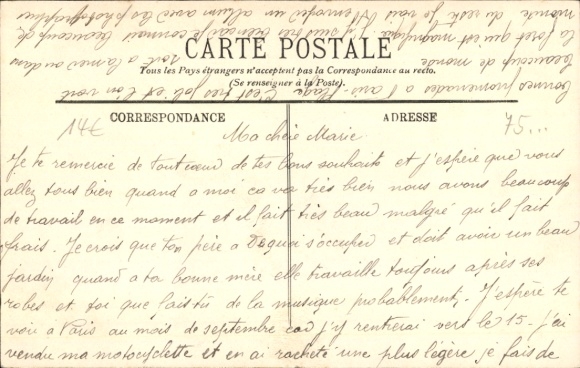 CARTE POSTALE
Tous les Pays étrangers n'acceptent pas la Correspondance au recto.
(Se renseigner à la Poste).
CORRESPONDANCE
ADRESSE
14€
75...
Ma chère Marie
Je te remercie de tout coeur de tes bons souhaits et j'espère que vous
allez tous bien quand a moi ca va très bien nous avons beaucoup
de travail en ce moment et il fait très beau malgré qu'il fait
frais. Je crois que ton père a De quoi s'occuper et doit avoir un beau
jardin quand a ta bonne mère elle travaille toujours après ses
robes et toi que fais tu de la musique probablement, J'espère te
voir a Paris au mois de septembre car j'y rentrerai vers le 15 - j'ai
vendu ma motocyclette et en ai racheté une plus légère je fais de
bonnes promenades a l'avis-plage c'est très joli et l'on voit
beaucoup de monde soit a la mer ou dans
la foret qui est magnifique j'y suis très bien car je connais beaucoup de
monde du reste je vous enverrai un album avec les photographies